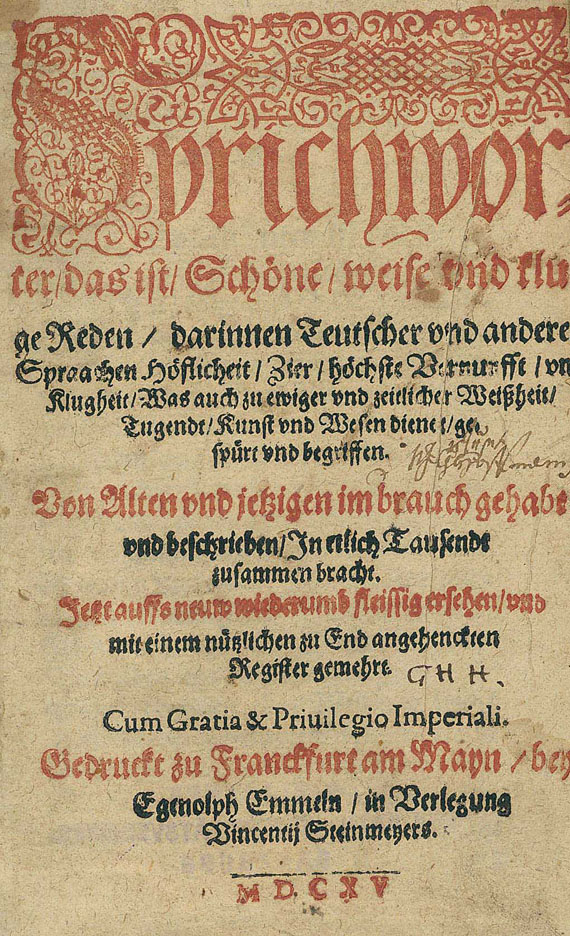 Sprichwör-
ter/das ist/ Schöne/ weise vnd klu
ge Reden / darinnen Teutscher vnd andere
Spraachen Höflicheit / Zier / höchste Vernunfft / vn
Klugheit/Was auch zu ewiger vnd zeitlicher Weißheit/
Tugendt/Kunst vnd Wesen dienet/ge
spürt vnd begriffen.
Von Alten vnd jetzigen im brauch gehabt
vnd beschrieben/In etlich Tausendt
zusammen bracht.
Jetzt auffs neuw wiederumb fleissig ersehen/vnd
mit einem nützlichen zu End angehenckten
Register gemehrt.
G H H.
Cum Gratia & Priuilegio Imperiali.
Gedruckt zu Franckfurt am Mayn / bey
Egenolph Emmeln / in Verlegung
Vincentij Steinmeyers.
M D C X V